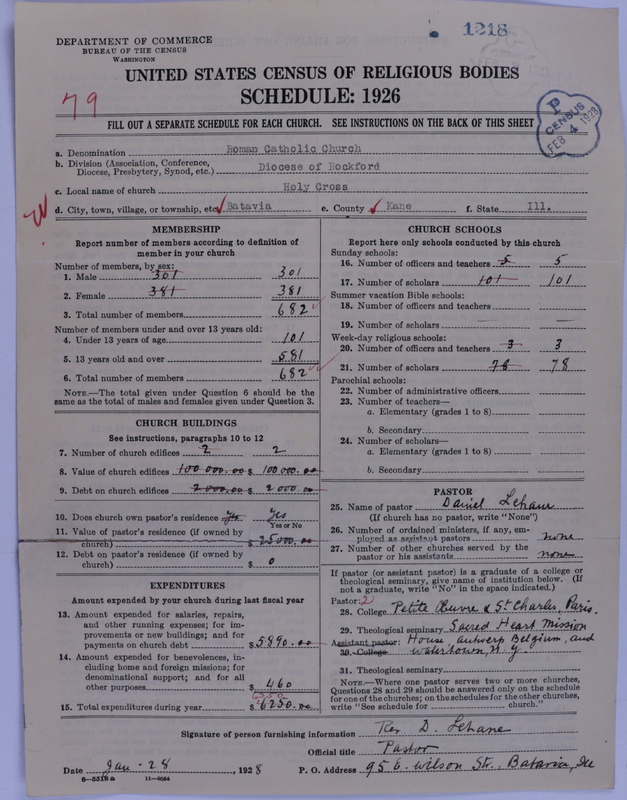 1218
DEPARTMENT OF COMMERCE
BUREAU OF THE CENSUS
WASHINGTON
UNITED STATES CENSUS OF RELIGIOUS BODIES
SCHEDULE: 1926
79
P
CENSUS
FEB 4 1928
FILL OUT A SEPARATE SCHEDULE FOR EACH CHURCH. SEE INSTRUCTIONS ON THE BACK OF THIS SHEET
a. Denomination Roman Catholic Church
b. Division (Association, Conference, Diocese, Presbytery, Synod, etc.) Diocese of Rockford
c. Local name of church Holy Cross
d. City, town, village, or township, etc. Batavia e. County Kane f. State Ill.
MEMBERSHIP
Report number of members according to definition of
member in your church
Number of members, by sex:
1. Male 301 301
2. Female 381 381
3. Total number of members 682
Number of members under and over 13 years old:
4. Under 13 years of age 101
5. 13 years old and over 581
6. Total number of members 682
NOTE.—The total given under Question 6 should be
same as the total of males and females given under Question 3.
CHURCH BUILDINGS
See instructions, paragraphs 10 to 12
7. Number of church edifices 2 2
8. Value of church edifices 100 000.00 $ 100 000.00
9. Debt on church edifices 2 000.00 $ 2 000.00
10. Does church own pastor's residence Yes Yes
Yes or No
11. Value of pastor's residence (if owned by
church) $ 25000.00
12. Debt on pastor's residence (if owned by
church) $ 0
EXPENDITURES
Amount expended by your church during last fiscal year
13. Amount expended for salaries, repairs,
and other running expenses; for im-
provements or new buildings; and for
payments on church debt $ 5890.00
14. Amount expended for benevolences, in-
cluding home and foreign missions; for
denominational support; and for all
other purposes $ 460
6350
15. Total expenditures during year $ 6250.00
CHURCH SCHOOLS
Report here only schools conducted by this church
Sunday schools:
16. Number of officers and teachers 5 5
17. Number of scholars 101 101
Summer vacation Bible schools:
18. Number of officers and teachers
19. Number of scholars
Week-day religious schools:
20. Number of officers and teachers 3 3
21. Number of scholars 78 78
Parochial schools:
22. Number of administrative officers
23. Number of teachers—
a. Elementary (grades 1 to 8)
b. Secondary
24. Number of scholars—
a. Elementary (grades 1 to 8)
b. Secondary
PASTOR
25. Name of pastor Daniel Lehane
(If church has no pastor, write "None")
26. Number of ordained ministers, if any, em-
ployed as assistant pastors none
27. Number of other churches served by the
pastor or his assistants none
If pastor (or assistant pastor) is a graduate of a college or
theological seminary, give name of institution below. (If
not a graduate, write "No" in the space indicated.)
Pastor: 2
28. College Petite Œuvre & St Charles, Paris.
29. Theological seminary Sacred Heart Mission
Assistant pastor: House Antwerp Belgium, and
30. College Watertown, N. Y
31. Theological seminary
NOTE.—Where one pastor serves two or more churches,
Questions 28 and 29 should be answered only on the schedule
for one of the churches; on the schedules for the other churches,
write "See schedule for church."
Signature of person furnishing information Rev D. Lehane
Official title Pastor
Date Jan - 28, 1928 P. O. Address 95 E. Wilson Str., Batavia, Ill
8—5518a 11—9084